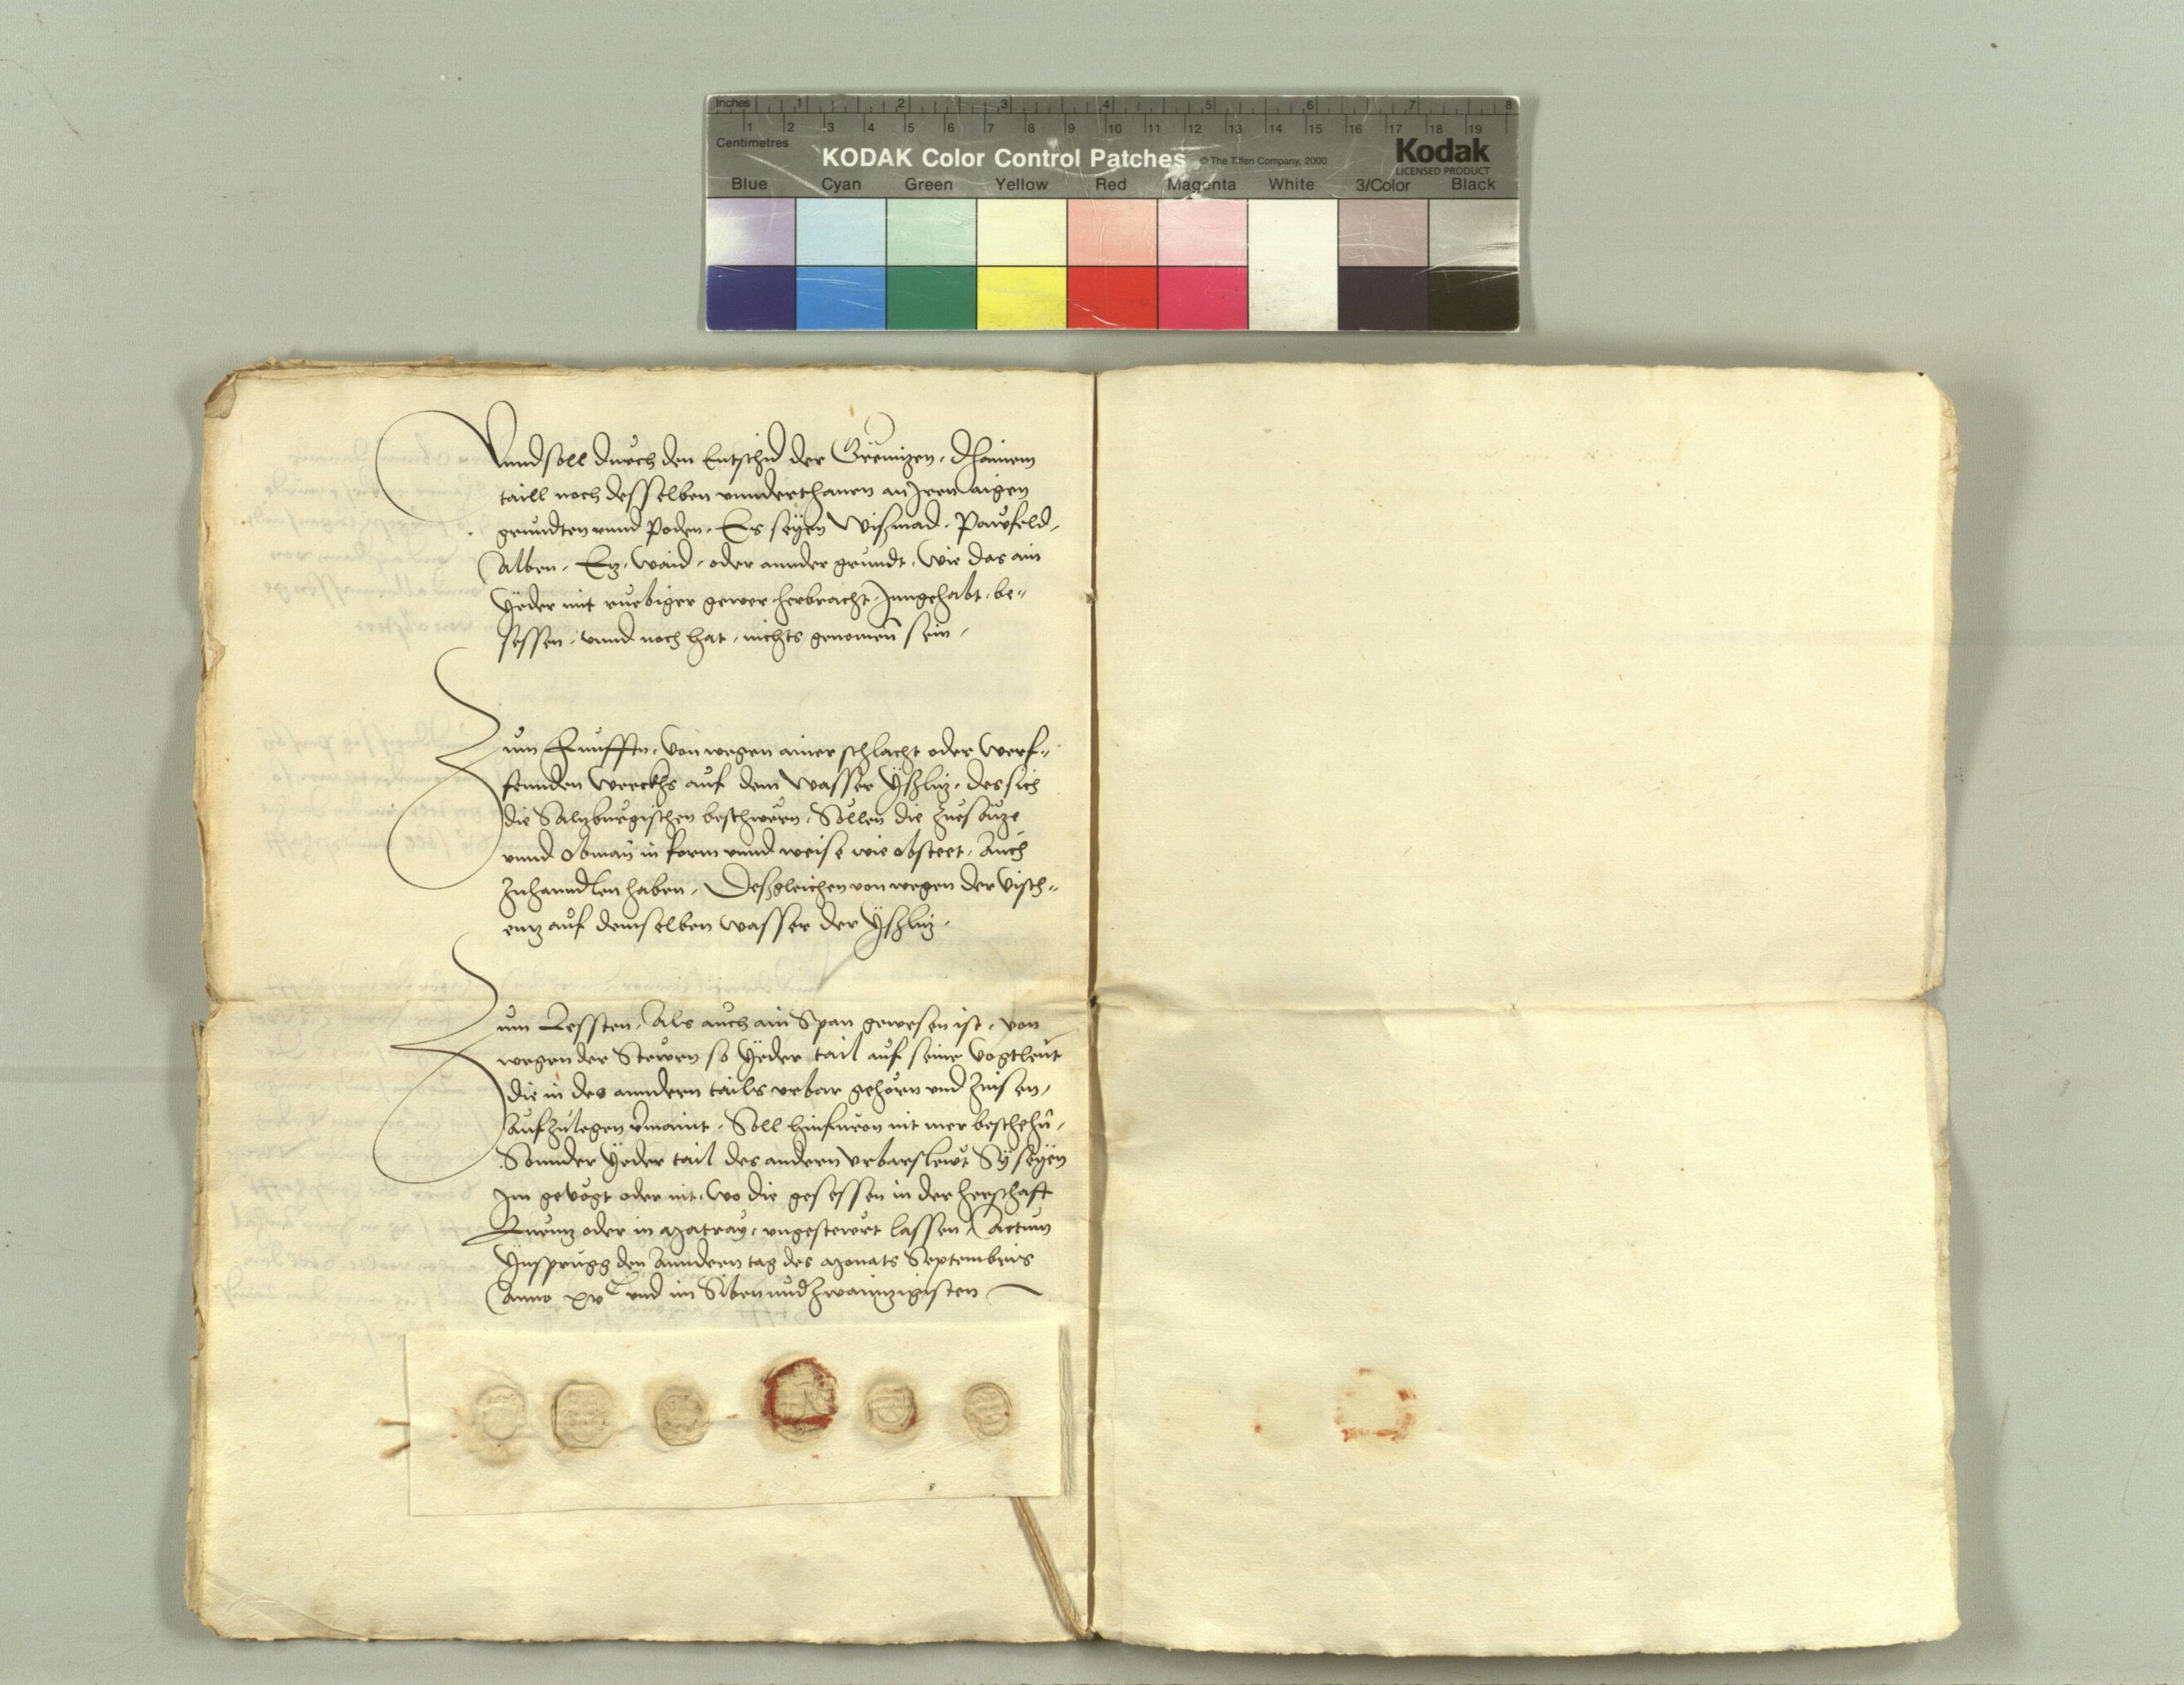 Inches 1 2 3 4 5 6 7 8
1 2 3 4 5 6 7 8 9 10 11 12 13 14 15 16 17 18 19
Centimetres
KODAK Color Control Patches © The Tiffen Company, 2000 Kodak
LICENSED PRODUCT
Blue Cyan Green Yellow Red Magenta White 3/Color Black
Vnnd soll durch den Entschid der Grenitzen, dhainem
taill noch desselben vnnderthanen an Iren aigen
grundten vnnd Poden, Es seyen Wißmad, Pawfeld,
Alben, Etz, Waid, oder annder grundt, Wie das ain
Yeder mit ruebiger gewer herbracht, Inngehabt, be„
sessen, vnnd noch hat, nichts genomen sein,
Zum Funfften, Von wegen ainer schlacht oder Werf„
fennden Werckhs auf dem Wasser Ysßlitz, des sich
die Saltzburgischen beschwern, Sollen die Zuesätze
vnnd Obman in form vnnd weise wie obsteet, Auch
Zuhanndlen haben, Deßgleichen von wegen der Visch„
entz auf demselben wasser der Ysßlitz,
Zum Lessten, Als auch ain Span gewesen ist, von
wegen der Stewrn so Yeder tail auf seine Vogtleut
die in des anndern tails vrbar gehörn vnd Zinsen,
Aufzulegen vermaint, Soll hinfuron nit mer beschehn,
Sonnder Yeder tail des andern Vrbarslewt Sy seyen
Im gevogt oder nit, Wo die gesessen in der herschaft
Luenntz oder in Matray, vngestewrt lassen, Actum
Ynsprugg den Anndern tag des Monats Septembris
Anno xvᶜ vnd im Siben vnd Zwaintzigisten